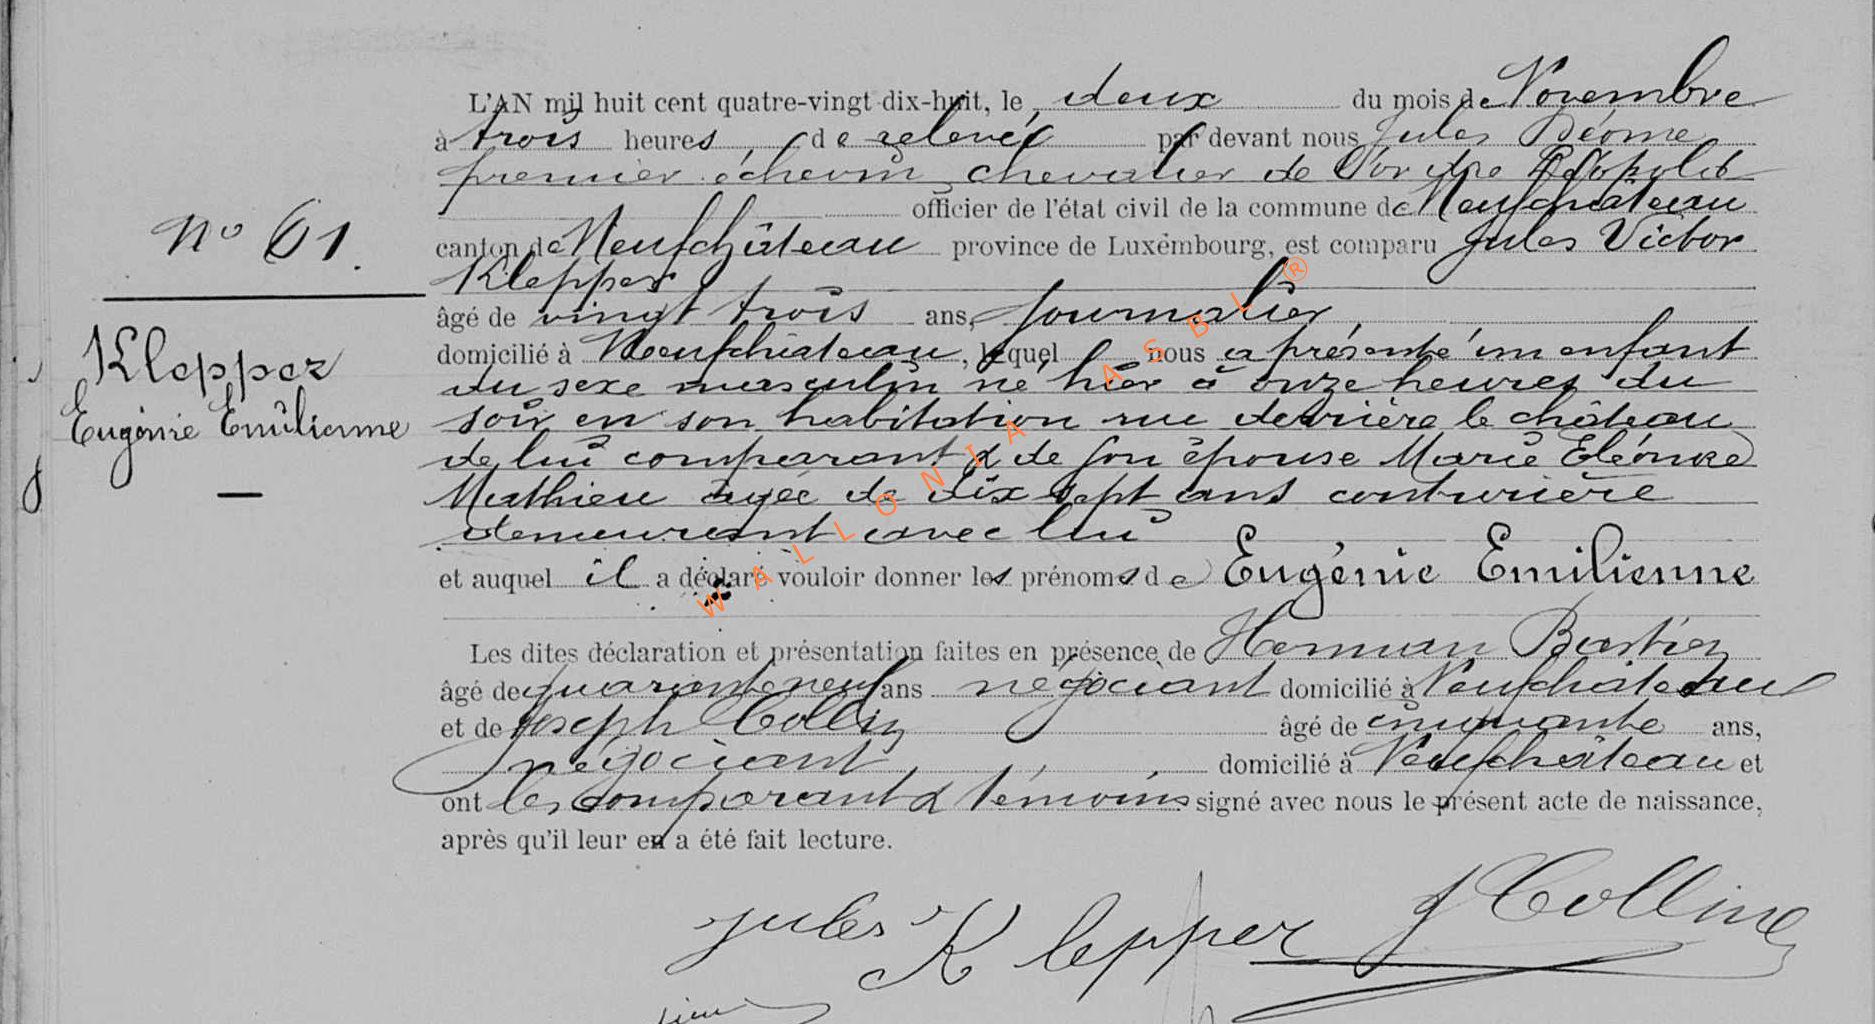 L'AN mil huit cent quatre-vingt dix-huit, le deux du mois de Novembre
à trois heures, de relevée par devant nous Jules Déome
premier échevin, chevalier de l'ordre Léopold
officier de l'état civil de la commune de Neufchâteau
N° 61.
canton de Neufchâteau province de Luxembourg, est comparu Jules Victor
Klepper
âgé de vingt trois ans, journalier,
domicilié à Neufchâteau, lequel nous a présenté un enfant
Klepper
du sexe masculin né hier à onze heures du
Eugénie Emilienne
soir en son habitation rue derrière le château
de lui comparant & de son épouse Marie Eléonore
Mathieu âgée de dix sept ans couturière
demeurant avec lui
et auquel il a déclaré vouloir donner les prénoms de Eugénie Emilienne
Les dites déclaration et présentation faites en présence de Herman Bastien
âgé de quarante neuf ans négociant domicilié à Neufchâteau
et de Joseph Collin âgé de cinquante ans,
négociant domicilié à Neufchâteau et
ont les comparant & témoins signé avec nous le présent acte de naissance,
après qu'il leur en a été fait lecture.
Jules Klepper J Colline
WALLONIA ASBL ®